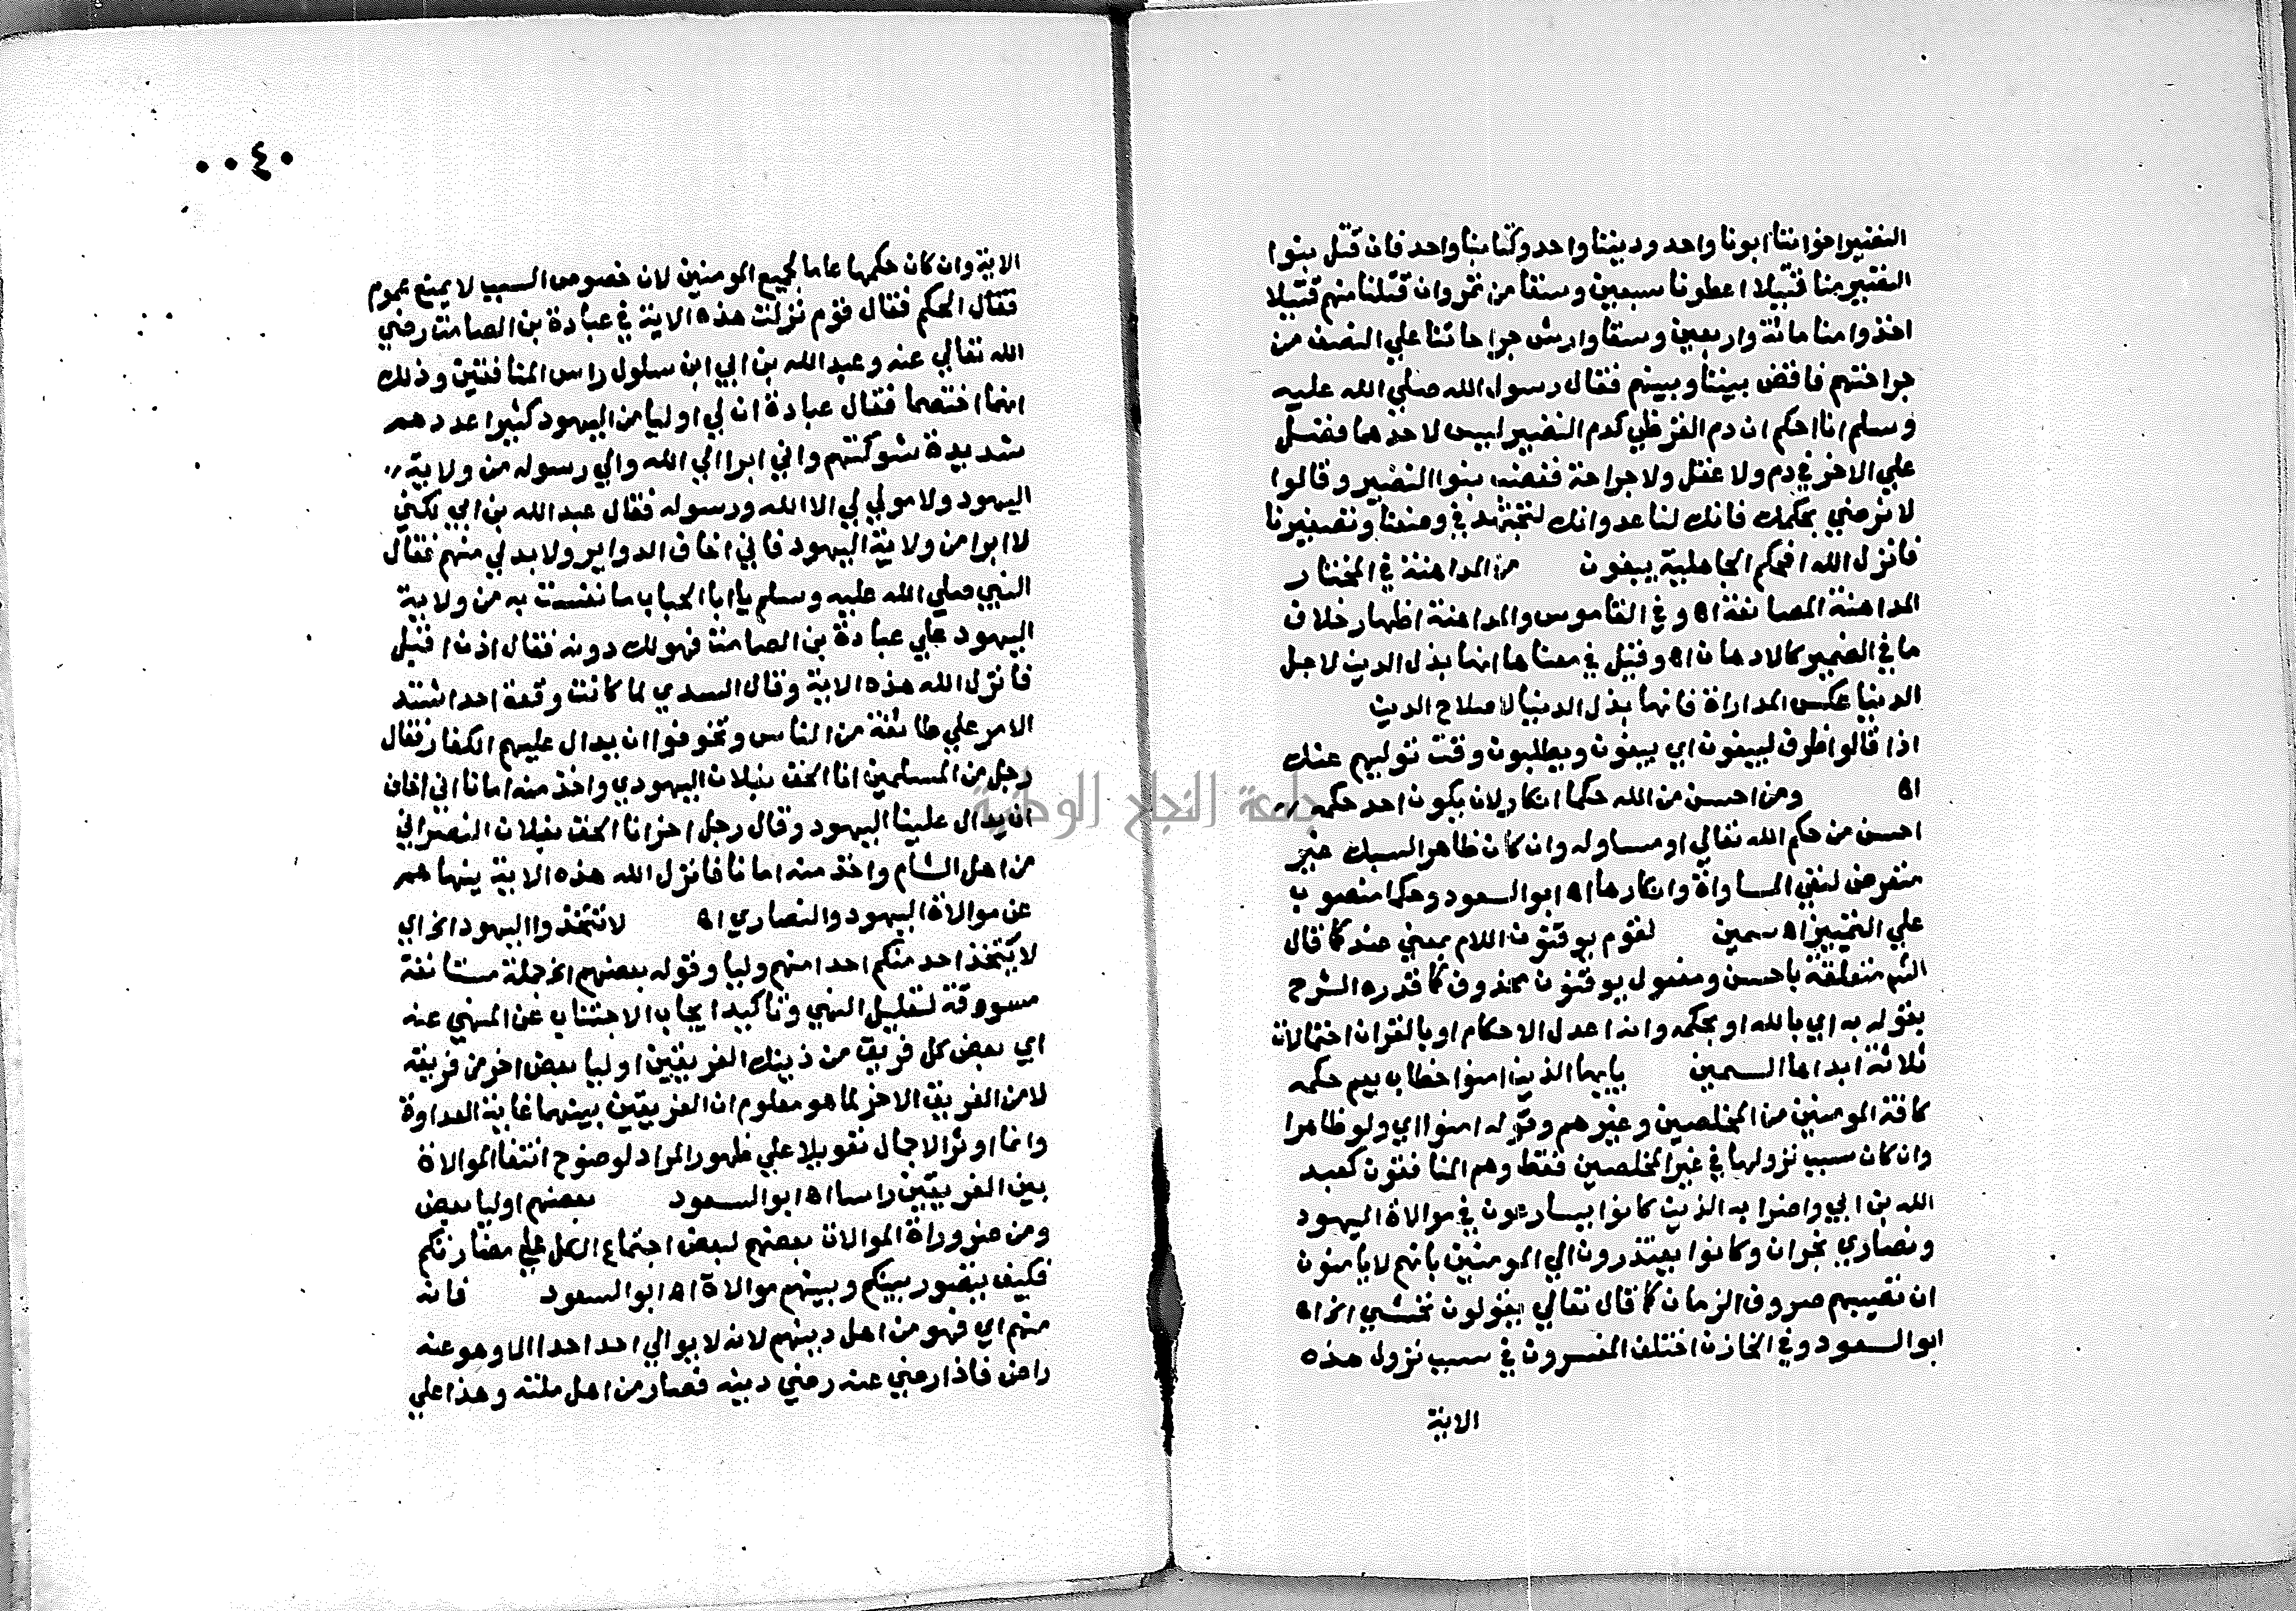 النضير اخواننا ابونا واحد وديننا واحد وكتابنا واحد فان قتل بنوا
النضير منا قتيلا اعطونا سبعين وسقا من تمر وان قتلنا منهم قتيلا
اخذوا منا مائة واربعين وسقا وارش جراحاتنا علي النصف من
جراحتهم فاقض بيننا وبينهم فقال رسول الله صلي الله عليه
وسلم انا احكم ان دم القرظي كدم النضير ليس لاحدهما فضل
علي الاخر في دم ولا عقل ولا جراحة فغضب بنوا النضير وقالوا
لا نرضي بحكمك فانك لنا عدو وانك لتجتهد في وضعنا وتصغيرنا
فانزل الله افحكم الجاهلية يبغون من المداهنة في المختار
المداهنة المصانعة اه وفي القاموس والمداهنة اظهار خلاف
ما في الضمير كالادهان اه وقيل في معناها انها بذل الدين لاجل
الدنيا عكس المداراة فانها بذل الدنيا لاصلاح الدين
اذا قالوا ظرف ليبغون اي يبغون ويطلبون وقت توليهم عنك
اه ومن احسن من الله حكما انكار لان يكون احد حكمه
احسن من حكم الله تعالي او مساو له وان كان ظاهر السبك غير
متعرض لنفي المساواة وانكارها اه ابو السعود وحكما منصوب
علي التمييز اه سمين لقوم يوقنون اللام بمعني عند كما قال
الش متعلقة باحسن ومفعول يوقنون محذوف كما قدره الشرح
بقوله به اي بالله او بحكمه وانه اعدل الاحكام او بالقران احتمالات
ثلاثة ابداها السمين يايها الذين امنوا خطاب يعم حكمه
كافة المومنين من المخلصين وغيرهم وقوله امنوا اي ولو ظاهرا
وان كان سبب نزولها في غير المخلصين فقط وهم المنافقون كعبد
الله بن ابي واضرابه الذين كانوا يسارعون في موالاة اليهود
ونصاري نجران وكانوا يعتذرون الي المومنين بانهم لا يامنون
ان تصيبهم صروف الزمان كما قال تعالي يقولون نخشي الخ اه
ابو السعود وفي الخازن اختلف المفسرون في سبب نزول هذه
الاية
٠٠٤٠
الاية وان كان حكمها عاما لجميع المومنين لان خصوص السبب لا يمنع عموم
الحكم فقال قوم نزلت هذه الاية في عبادة بن الصامت رضي
الله تعالي عنه وعبد الله بن ابي ابن سلول راس المنافقين وذلك
انهما اختصما فقال عبادة ان لي اوليا من اليهود كثيرا عددهم
شديدة شوكتهم واني ابرا الي الله والي رسوله من ولاية
اليهود ولا مولي لي الا الله ورسوله فقال عبد الله بن ابي لكني
لا ابرا من ولاية اليهود فاني اخاف الدواير ولا بد لي منهم فقال
النبي صلي الله عليه وسلم يا ابا الحباب ما نفست به من ولاية
اليهود علي عبادة بن الصامت فهو لك دونه فقال اذن اقبل
فانزل الله هذه الاية وقال السدي لما كانت وقعة احد اشتد
الامر علي طائفة من الناس وتخوفوا ان يدال عليهم الكفار فقال
رجل من المسلمين انا الحق بفلان اليهودي واخذ منه امانا اني اخاف
ان يدال علينا اليهود وقال رجل اخر انا الحق بفلان النصراني
من اهل الشام واخذ منه امانا فانزل الله هذه الاية ينهاهم
عن موالاة اليهود والنصاري اه لا تتخذوا اليهود الخ اي
لا يتخذ احد منكم احدا منهم وليا وقوله بعضهم الخ جملة مستانفة
مسوقة لتعليل النهي وتاكيد ايجاب الاجتناب عن المنهي عنه
اي بعض كل فريق من ذينك الفريقين اوليا بعض اخر من فريقه
لا من الفريق الاخر لما هو معلوم ان الفريقين بينهما غاية العداوة
وانما اوثر الاجمال تعويلا علي ظهور المراد لوضوح انتفا الموالاة
بين الفريقين راسا اه ابو السعود بعضهم اوليا بعض
ومن ضرورة الموالات بعضهم لبعض اجتماع الكل علي مضارتكم
فكيف يتصور بينكم وبينهم موالاة اه ابو السعود فانه
منهم اي فهو من اهل دينهم لانه لا يوالي احد احدا الا وهو عنه
راض فاذا رضي عنه رضي دينه فصار من اهل ملته وهذا علي
جامعة النجاح الوطنية